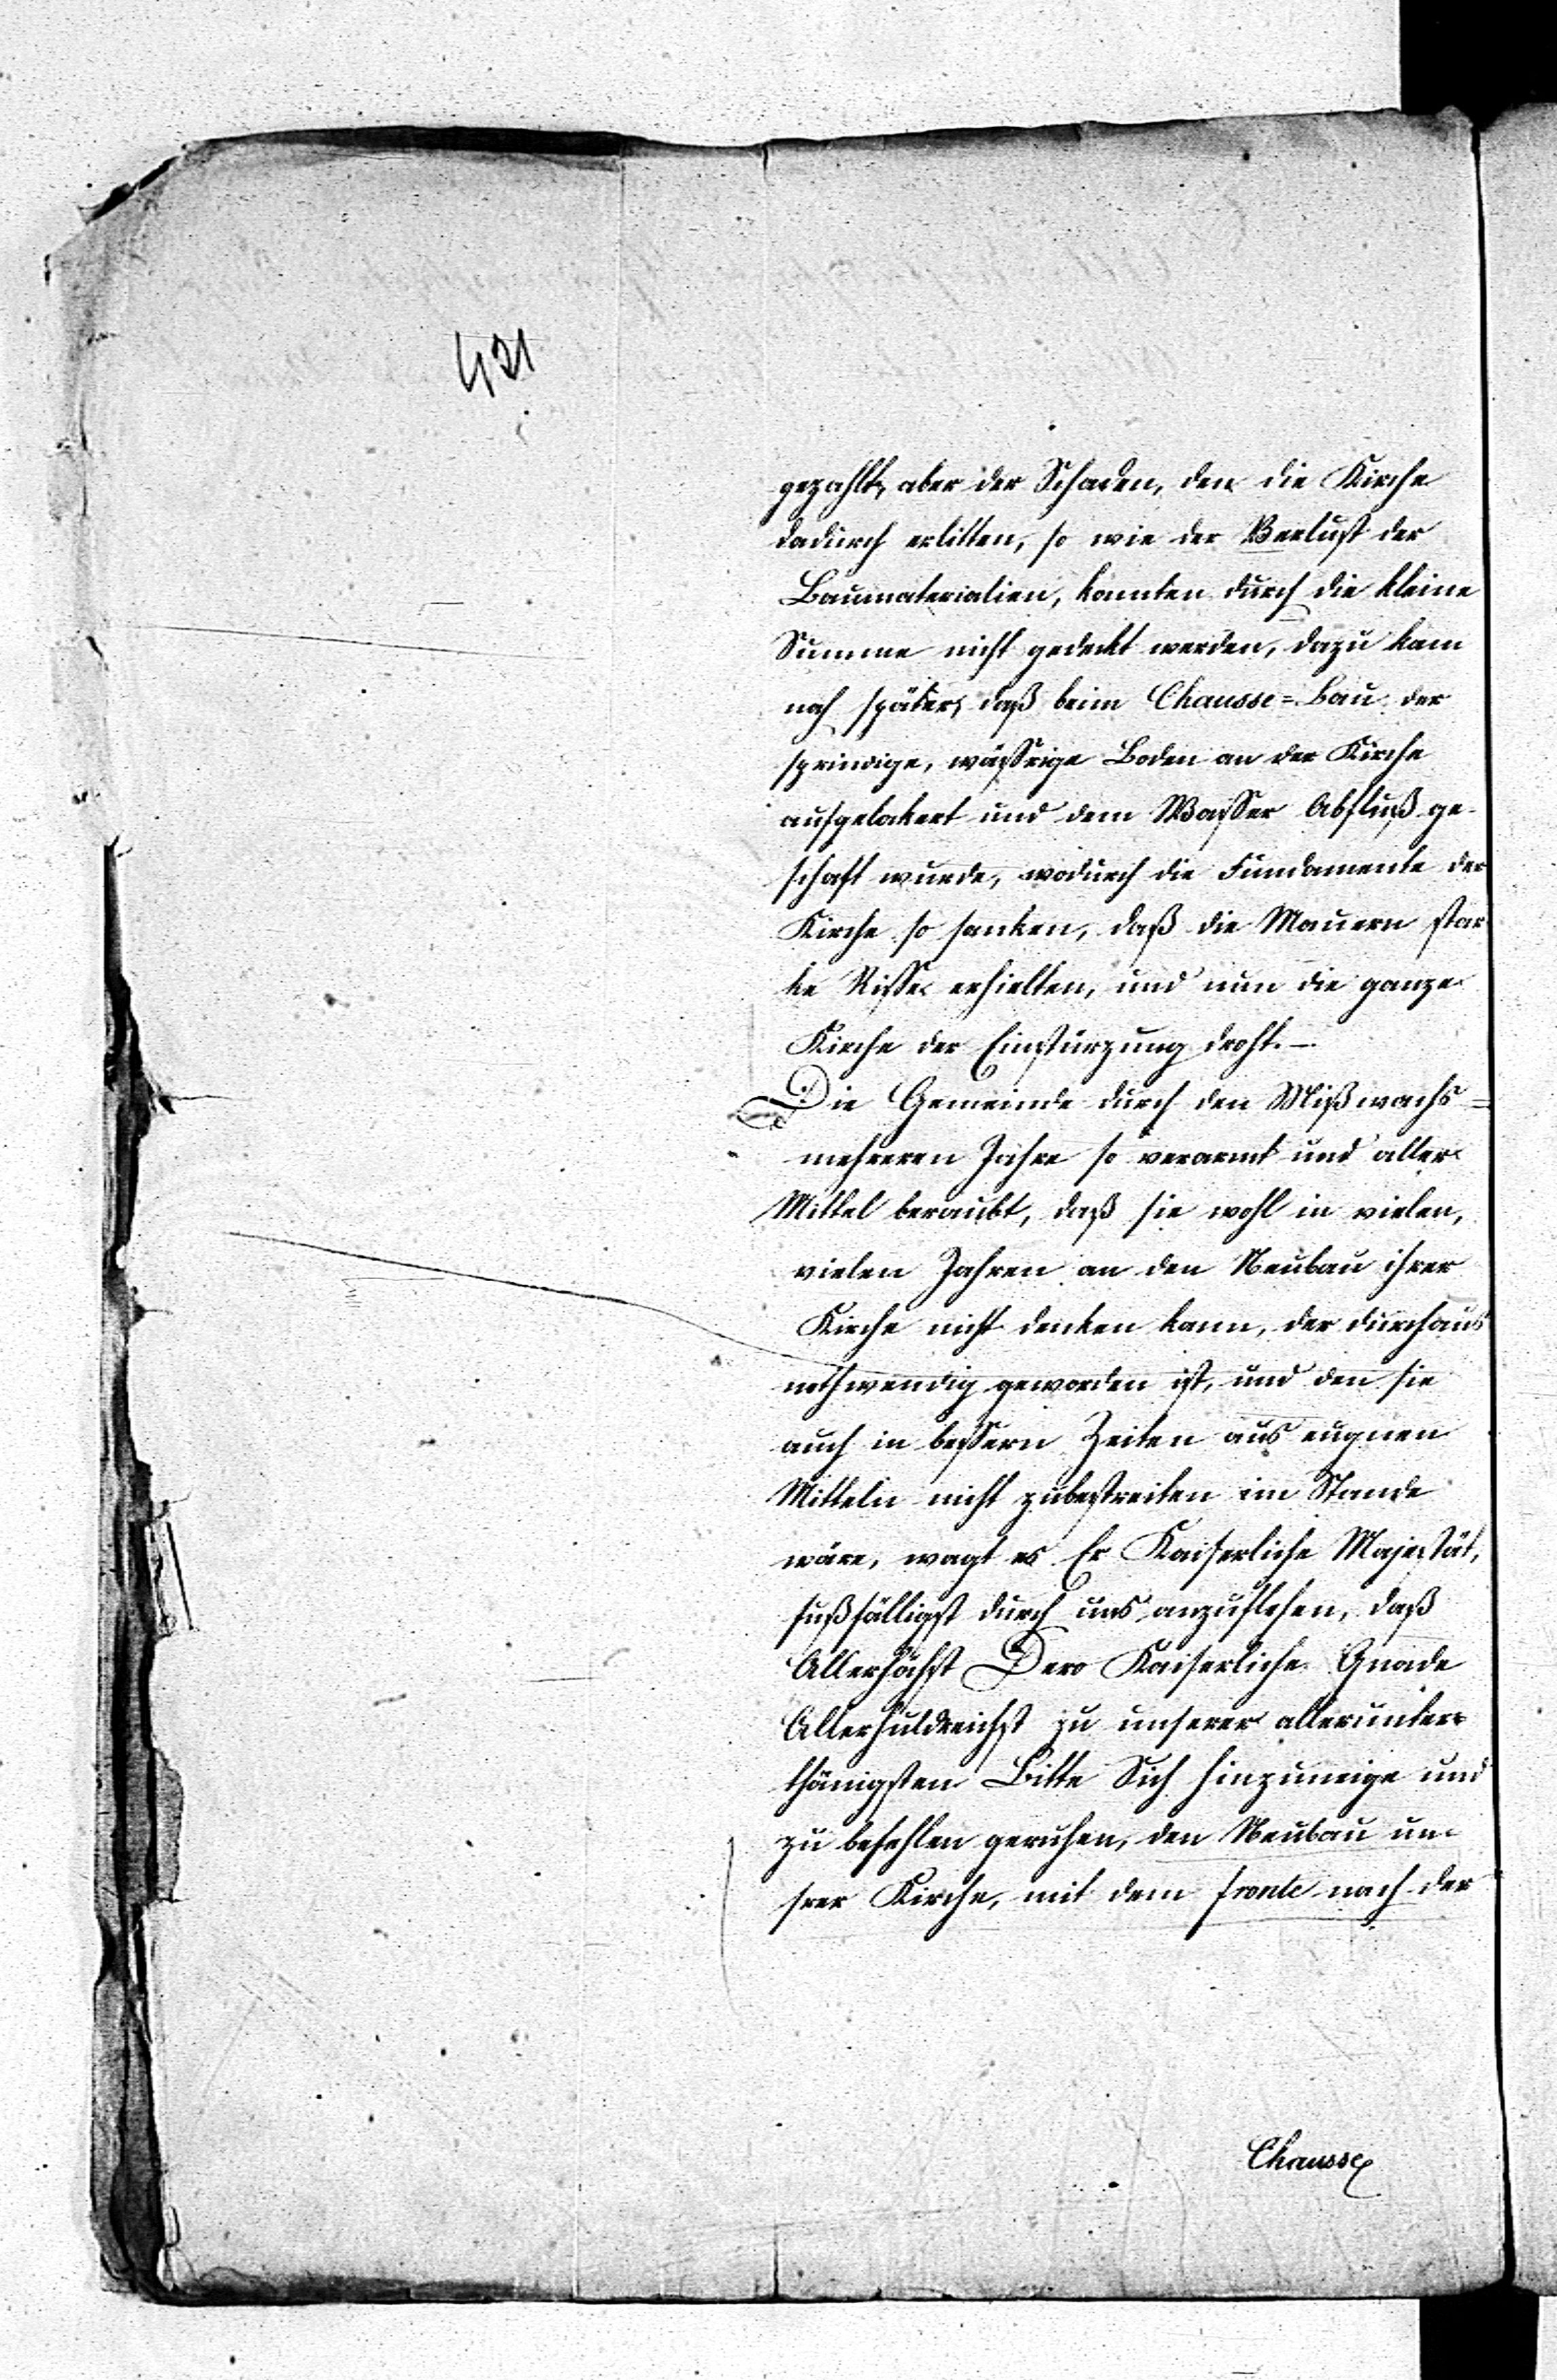 421
gezahlt, aber der Schaden, den die Kirche
dadurch erlitten, so wie der Verlust der
Baumaterialien, konnten durch die kleine
Summe nicht gedeckt werden, dazu kam
noch später, daß beim Chausse=Bau der
sprindige, wäßrige Boden an der Kirche
aufgelokert und dem Waßer Abfluß ge-
schaft wurde, wodurch die Fundamente der
Kirche so sanken, daß die Mauern star
ke Riße erhielten, und nun die ganze
Kirche der Einstürzung droht. —
Die Gemeinde durch den Mißwachs=
mehreren Jahre so verarmt und aller
Mittel beraubt, daß sie wohl in vielen,
vielen Jahren an den Neubau ihrer
Kirche nicht denken kann, der durchaus
nothwendig geworden ist, und den sie
auch in beßern Zeiten aus eugnen
Mitteln nicht zubestreiten im Stande
wäre, wagt es Er Kaiserliche Majestät,
fußfälligst durch uns anzuflehen, daß
Allerhöchst Dero Kaiserliche Gnade
Allerhuldreichst zu unserer allerunter
thänigsten Bitte Sich hinzuneige und
zu befehlen geruhen, den Neubau un-
srer Kirche, mit dem fronte nach der
Chausse